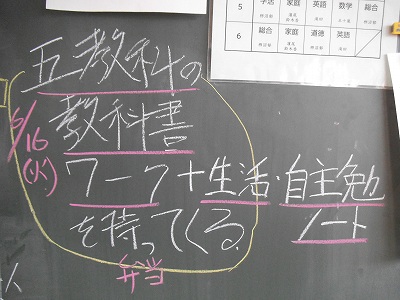 5 学活 家庭 英語 数学 総合
6 総合 家庭 道徳 英語
五教科の
教科書
6/16
(火)
ワーク+生活・自主勉
ノート
を持ってくる。
弁当